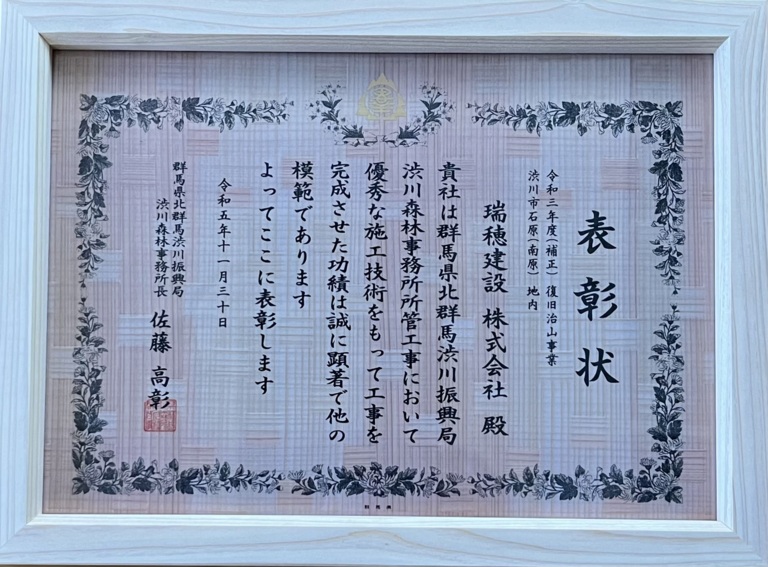 表彰状
令和三年度(補正) 復旧治山事業
渋川市石原(南原) 地内
瑞穂建設 株式会社 殿
貴社は群馬県北群馬渋川振興局
渋川森林事務所所管工事において
優秀な施工技術をもって工事を
完成させた功績は誠に顕著で他の
模範であります
よってここに表彰します
令和五年十一月三十日
群馬県北群馬渋川振興局
渋川森林事務所長 佐藤 高彰